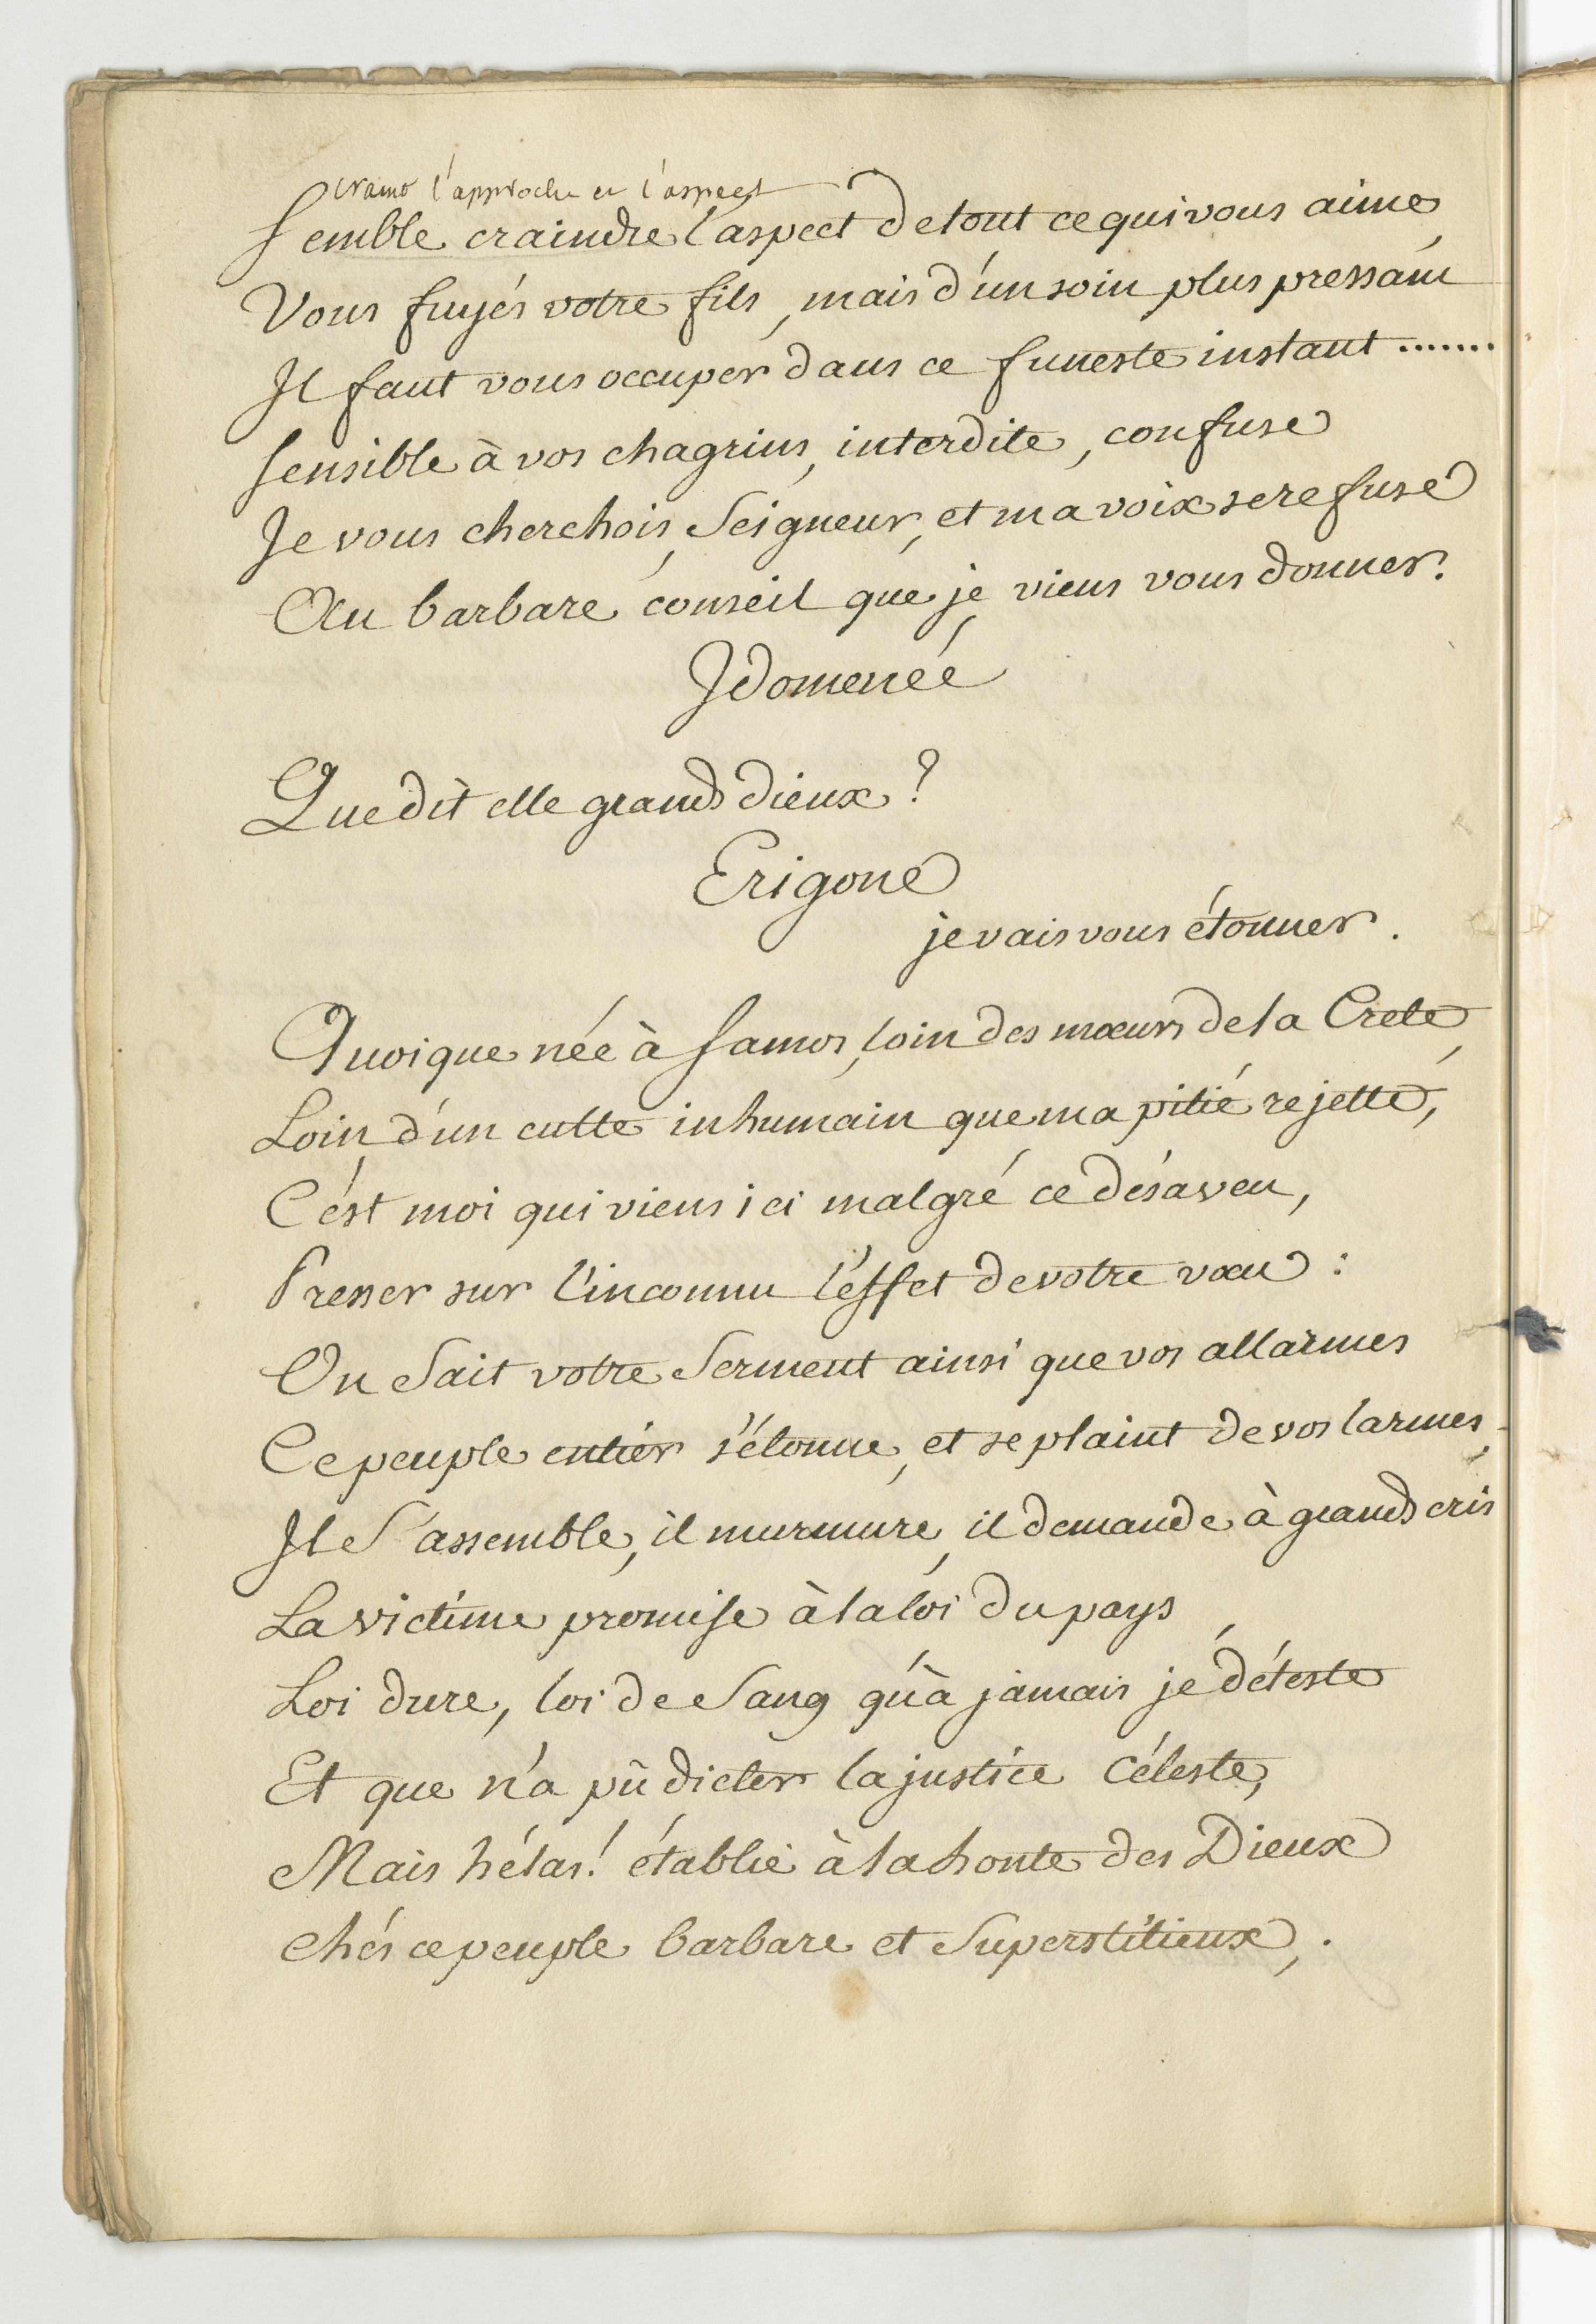 craint l'approche et l'aspect
Semble craindre l'aspect de tout ce qui vous aime,
Vous fuyés votre fils, mais d'un soin plus pressant
Il faut vous occuper dans ce funeste instant .......
Sensible à vos chagrins, interdite, confuse
Je vous cherchois, Seigneur, et ma voix se refuse
Au barbare conseil que je viens vous donner.
Idomenée
Que dit elle grands dieux ?
Erigone
je vais vous étonner.
Quoique née à Samos, loin des mœurs de la Crete,
Loin d'un culte inhumain que ma pitié rejette,
C'est moi qui viens ici malgré ce désaveu,
Presser sur l'inconnu l'effet de votre vœu :
On Sait votre Serment ainsi que vos allarmes
Ce peuple entier s'étonne, et se plaint de vos larmes,
Il S'assemble, il murmure, il demande à grands cris
La victime promise à la loi du pays,
Loi dure, loi de Sang qu'à jamais je déteste
Et que n'a pû dicter la justice Céleste,
Mais hélas! établie à la honte des Dieux
chés ce peuple barbare et Superstitieux,.